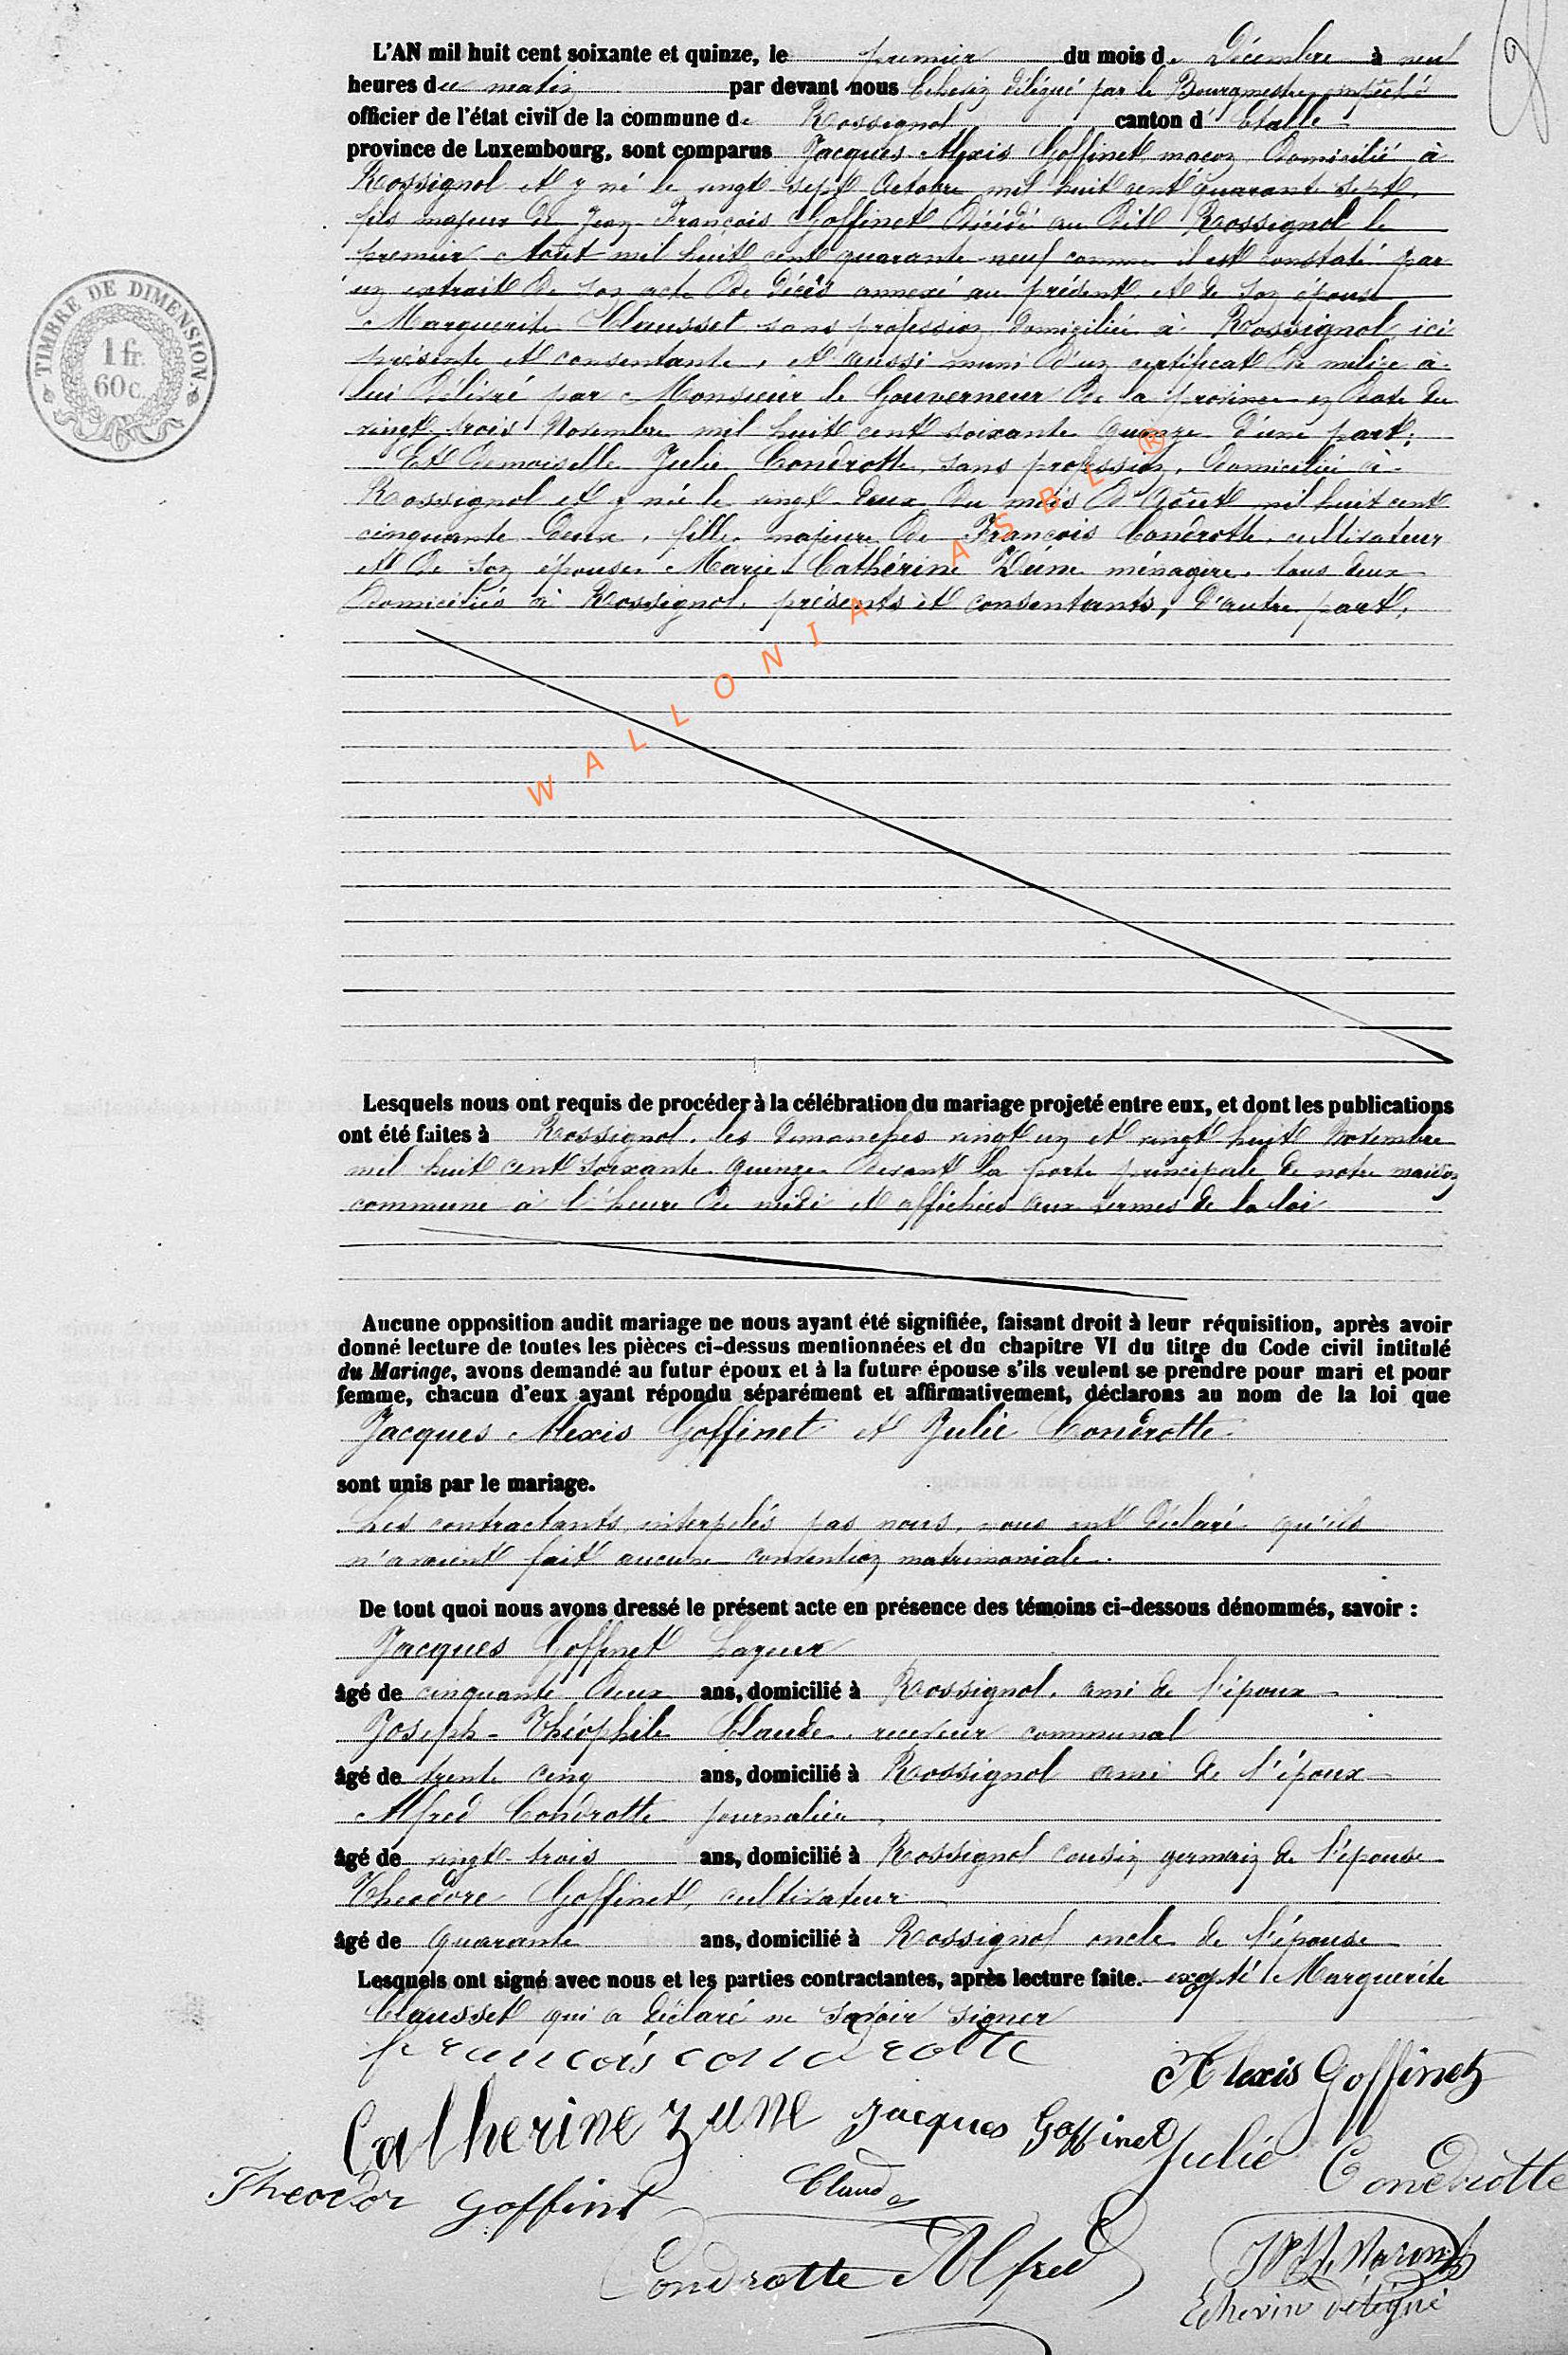 L'AN mil huit cent soixante et quinze, le premier du mois de Décembre à neuf
heures du matin par devant nous Echevin délégué par le Bourgmestre empêché
officier de l'état civil de la commune de Rossignol canton d' Etalle
province de Luxembourg, sont comparus Jacques Alexis Goffinet maçon domicilié à
Rossignol et y né le vingt sept Octobre mil huit cent quarante sept,
fils majeur de Jean François Goffinet décédé au dit Rossignol le
premier Août mil huit cent quarante neuf comme il est constaté par
un extrait de son acte de décès annexé au présent, et de son épouse
Marguerite Clausset sans profession domiciliée à Rossignol, ici
présente et consentante, et aussi muni d'un certificat de milice à
lui délivré par Monsieur le Gouverneur de la province en date du
vingt trois Novembre mil huit cent soixante quinze d'une part;
Et demoiselle Julie Condrotte, sans profession, domiciliée à
Rossignol et y née le vingt deux du mois d'Août mil huit cent
cinquante deux, fille majeure de François Condrotte, cultivateur
et de son épouse Marie Cathérine Zune ménagère, tous deux
domiciliés à Rossignol, présents et consentants, d'autre part,
TIMBRE DE DIMENSION
1 fr.
60 c.
WALLONIA ASBL ®
Lesquels nous ont requis de procéder à la célébration du mariage projeté entre eux, et dont les publications
ont été faites à Rossignol, les dimanches vingt un et vingt huit Novembre
mil huit cent soixante quinze devant la porte principale de notre maison
commune à l'heure de midi et affichées aux termes de la loi
Aucune opposition audit mariage ne nous ayant été signifiée, faisant droit à leur réquisition, après avoir
donné lecture de toutes les pièces ci-dessus mentionnées et du chapitre VI du titre du Code civil intitulé
du Mariage, avons demandé au futur époux et à la future épouse s'ils veulent se prendre pour mari et pour
femme, chacun d'eux ayant répondu séparément et affirmativement, déclarons au nom de la loi que
Jacques Alexis Goffinet et Julie Condrotte
sont unis par le mariage.
Les contractants, interpelés par nous, nous ont déclaré qu'ils
n'avaient fait aucune convention matrimoniale.
De tout quoi nous avons dressé le présent acte en présence des témoins ci-dessous dénommés, savoir :
Jacques Goffinet
âgé de cinquante deux ans, domicilié à Rossignol, ami de l'époux
Joseph-Théophile Claude, receveur communal
âgé de trente cinq ans, domicilié à Rossignol ami de l'époux
Alfred Condrotte journalier
âgé de vingt trois ans, domicilié à Rossignol cousin germain de l'épouse
Théodore Goffinet, cultivateur
âgé de quarante ans, domicilié à Rossignol oncle de l'épouse
Lesquels ont signé avec nous et les parties contractantes, après lecture faite. excepté Marguerite
Clausset qui a déclaré ne savoir signer
francois condrotte
Alexis Goffinet
Catherine zune Jacques Goffinet Julie Condrotte
Theodor goffint Claude
Condrotte Alfred
Echevin délégué